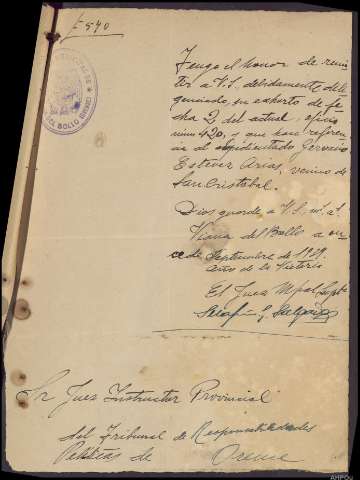 E 540
Tengo el honor de remi-
tir a V.S. debidamente dili-
genciado, su exhorto de fe-
cha 2 del actual, oficio
num 420, y que hace referen-
cia al expedientado Gervasio
Estevez Arias, vecino de
San Cristobal.
Dios guarde a V.S. m. a.
Viana del Bollo a on-
ce de Septiembre de 1939
Año de la Victoria
El Juez Mpal Supte
Sr Juez Instructor Provincial
del Tribunal de Responsabilidades
Politicas de Orense
AHPOu